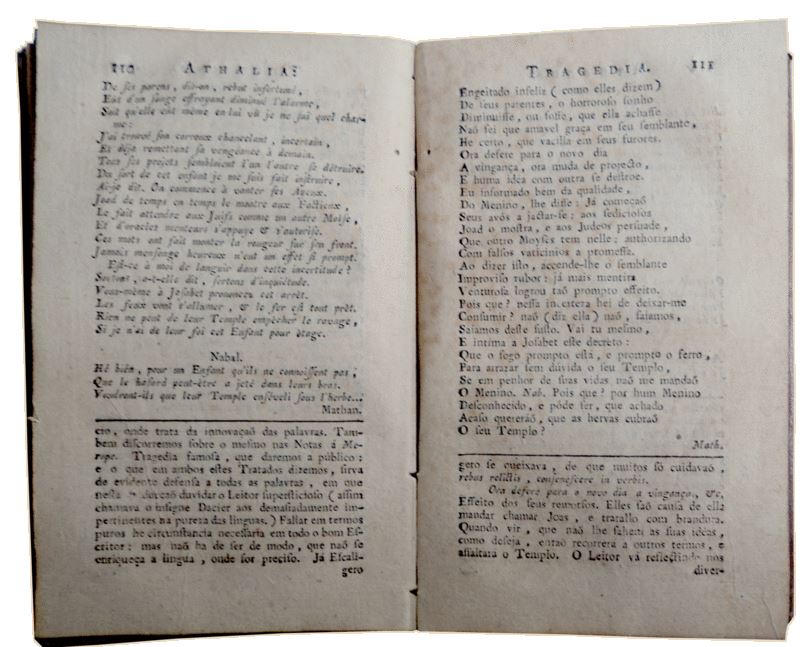 110 ATHALIA:
De ses parens, dit-on, rebut infortuné,
Eut d'un songe effroyant diminué l'alarme,
Soit qu'elle eût même en lui vû je ne sai quel char-
me:
J'ai trouvé son courroux chancelant, incertain,
Et déja remettant sa vengeance à demain.
Tous ses projets sembloient l'un l'autre se détruire.
Du sort de cet enfant je me suis fait instruire,
Ai-je dit. On commence à vanter ses Ayeux.
Joad de temps en temps le montre aux Factieux,
Le fait attendre aux Juifs comme un autre Moïse,
Et d'oracles menteurs s'appuye & s'autorise.
Ces mots ont fait monter la rougeur sur son front.
Jamais mensonge heureux n'eut un effet si prompt.
Est-ce à moi de languir dans cette incertitude?
Sortons, a-t-elle dit, sortons d'inquiétude.
Vous-même à Josabet prononcez cet arrêt.
Les feux vont s'allumer, & le fer est tout prêt.
Rien ne peut de leur Temple empêcher le ravage,
Si je n'ai de leur foi cet Enfant pour ôtage.
Nabal.
Hé bien, pour un Enfant qu'ils ne connoissent pas,
Que le hasard peut-être a jeté dans leurs bras.
Voudront-ils que leur Temple enséveli sous l'herbe...
Mathan.
cio, onde trata da innovaçaõ das palavras. Tam-
bem discorremos sobre o mesmo nas Notas á Me-
rope. Tragedia famosa, que daremos a público:
e o que em ambos estes Tratados dizemos, sirva
de evidente defensa a todas as palavras, em que
nesta duvidar o Leitor supersticioso (assim
chamava o insigne Dacier aos demasiadamente im-
pertinentes na pureza das linguas.) Fallar em termos
puros he circunstancia necessaria em todo o bom Es-
critor: mas naõ ha de ser de modo, que naõ se
enriqueça a lingua, onde for preciso. Já Escali-
gero
TRAGEDIA. 111
Engeitado infeliz (como elles dizem)
De seus parentes, o horroroso sonho
Diminuisse, ou fosse, que ella achasse
Naõ sei que amavel graça em seu semblante,
He certo, que vacilla em seus furores.
Ora defere para o novo dia
A vingança, ora muda de projecto,
E huma idéa com outra se destroe.
Eu informado bem da qualidade,
Do Menino, lhe disse: Já começaõ
Seus avós a jactar-se: aos sediciosos
Joad o mostra, e aos Judeos persuade,
Que outro Moyses tem nelle: authorizando
Com falsos vaticinios a promessa.
Ao dizer isto, accende-lhe o semblante
Improviso rubor: já mais mentira
Venturosa logrou taõ prompto effeito.
Pois que? nessa incerteza hei de deixar-me
Consumir? naõ (diz ella) naõ, saiamos,
Saiamos deste susto. Vai tu mesmo,
E intíma a Josabet este decreto:
Que o fogo prompto está, e prompto o ferro,
Para arrazar sem dúvida o seu Templo,
Se em penhor de suas vidas naõ me mandaõ
O Menino. Nab. Pois que? por hum Menino
Desconhecido, e póde ser, que achado
Acaso quereráõ, que as hervas cubraõ
O seu Templo?
Math.
gero se queixava, de que muitos só cuidavaõ,
rebus relictis, consenescere in verbis.
Ora defere para o novo dia a vingança, &c.
Effeito dos seus remorsos. Elles saõ causa de ella
mandar chamar Joas, e tratallo com brandura.
Quando vir, que naõ lhe sahem as suas idéas,
como deseja, entaõ recorrerá a outros termos, e
assaltará o Templo. O Leitor vá reflectindo nos
diver-